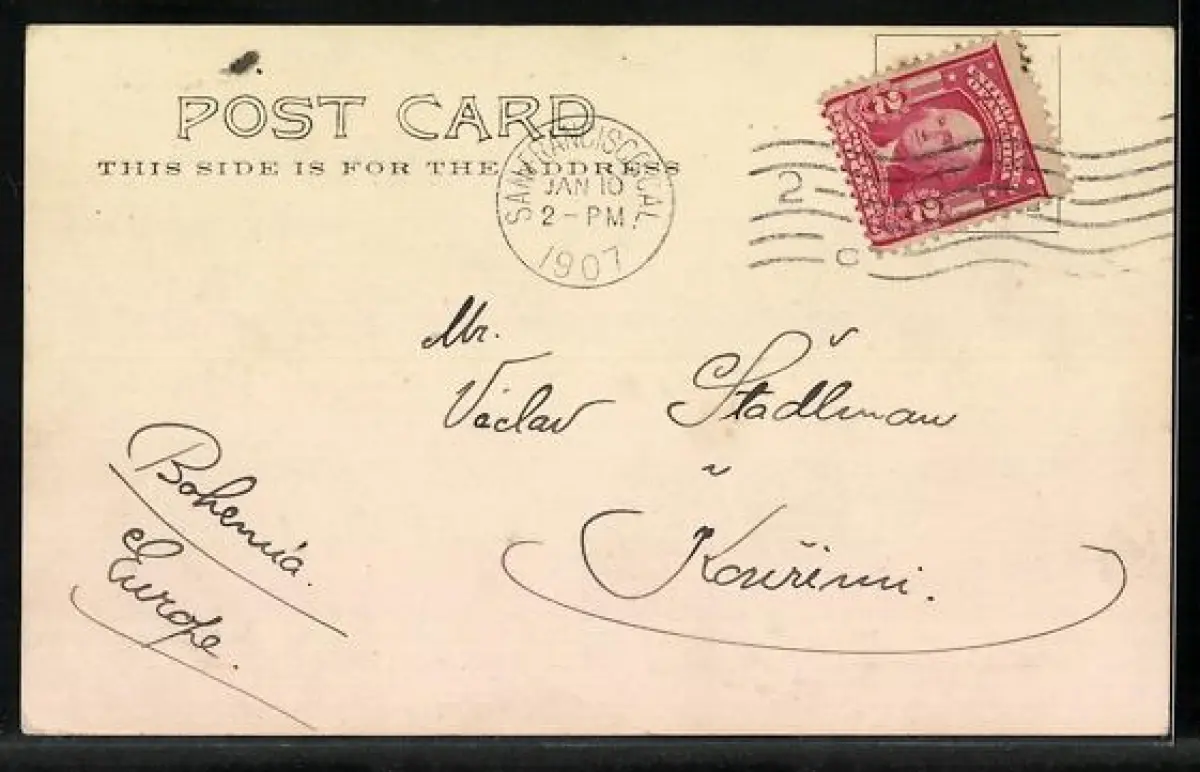 POST CARD
THIS SIDE IS FOR THE ADDRESS
SAN FRANCISCO, CAL.
JAN 10
2-PM.
1907
2
C
2 2
Mr.
Václav Štădlman
v
Kouřimi.
Bohemia.
Europe.